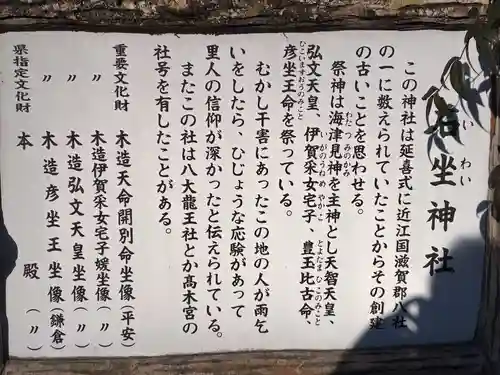 石坐神社
いわい
この神社は延喜式に近江国滋賀郡八社
の一に数えられていたことからその創建
の古いことを思わせる。
祭神は海津見神を主神とし天智天皇、
わたつみのかみ
弘文天皇、伊賀采女宅子、豊玉比古命、
こいますおうのみこと
がのうねめ やかこ
とよたま ひこのみこと
彦坐王命を祭っている。
むかし干害にあったこの地の人が雨乞
いをしたら、ひじょうな応験があって
里人の信仰が深かったと伝えられている。
またこの社は八大龍王社とか高木宮の
社号を有したことがある。
重要文化財 木造天命開別命坐像(平安)
〃 木造伊賀采女宅子媛坐像(〃)
〃 木造弘文天皇坐像(〃)
〃 木造彦坐王坐像(鎌倉)
県指定文化財 本殿(〃)